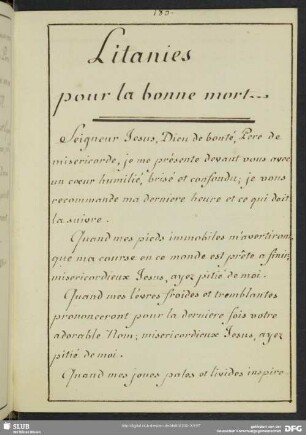 185.
Litanies
pour la bonne mort.
Seigneur Jesus, Dieu de bonté, Pere de
misericorde, je me présente devant vous avec
un cœur humilié, brisé et confondu; je vous
recommande ma derniere heure et ce qui doit
la suivre.
Quand mes pieds immobiles m'avertiront
que ma course en ce monde est prête a finir,
misericordieux Jesus, ayez pitié de moi.
Quand mes lévres froides et tremblantes
prononceront pour la derniere fois votre
adorable Nom; misericordieux Jesus, ayez
pitié de moi.
Quand mes joues pales et livides inspire-
SLUB
DFG